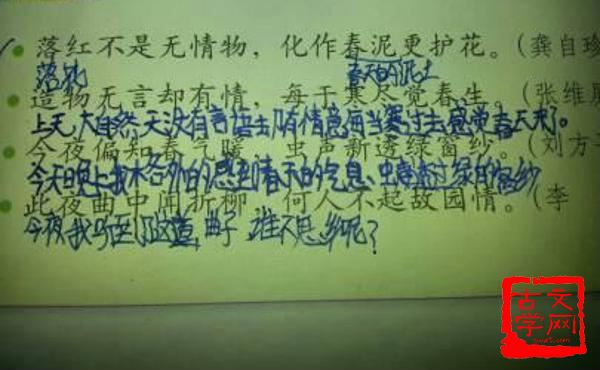 落红不是无情物，化作春泥更护花。(龚自珍
落花 春天的泥土
造物无言却有情，每于寒尽觉春生。(张维屏
上天,大自然,天没有言语去有情感每当寒过去感觉春天来了。
今夜偏知春气暖，虫声新透绿窗纱。(刘方平
今天晚上我 格外的感到春天的气息、虫 透过绿的窗纱
此夜曲中闻折柳，何人不起故园情。(李
今夜我听到了这 曲子 谁不思乡呢?
古文
学网